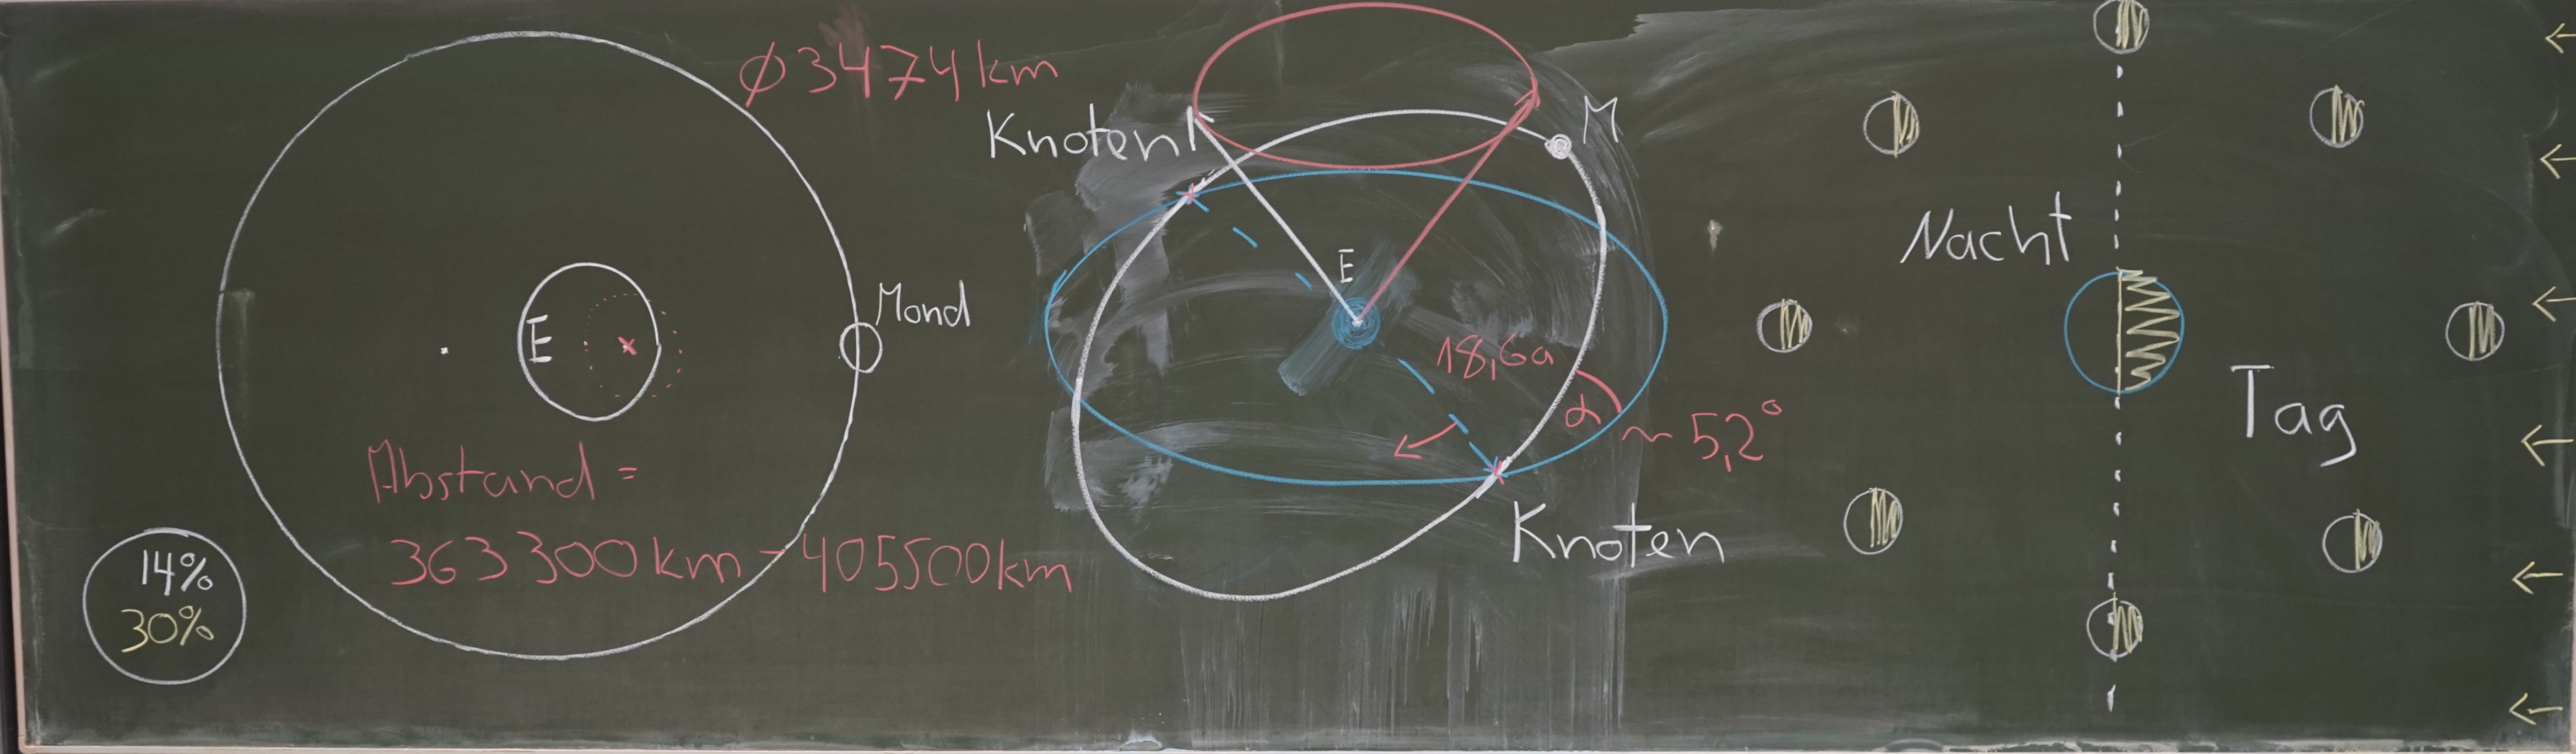 Ø 3474 km
E
Mond
Abstand =
363 300 km - 405500 km
14%
30%
Knoten
M
E
18,6a
α ~ 5,2°
Knoten
Nacht
Tag